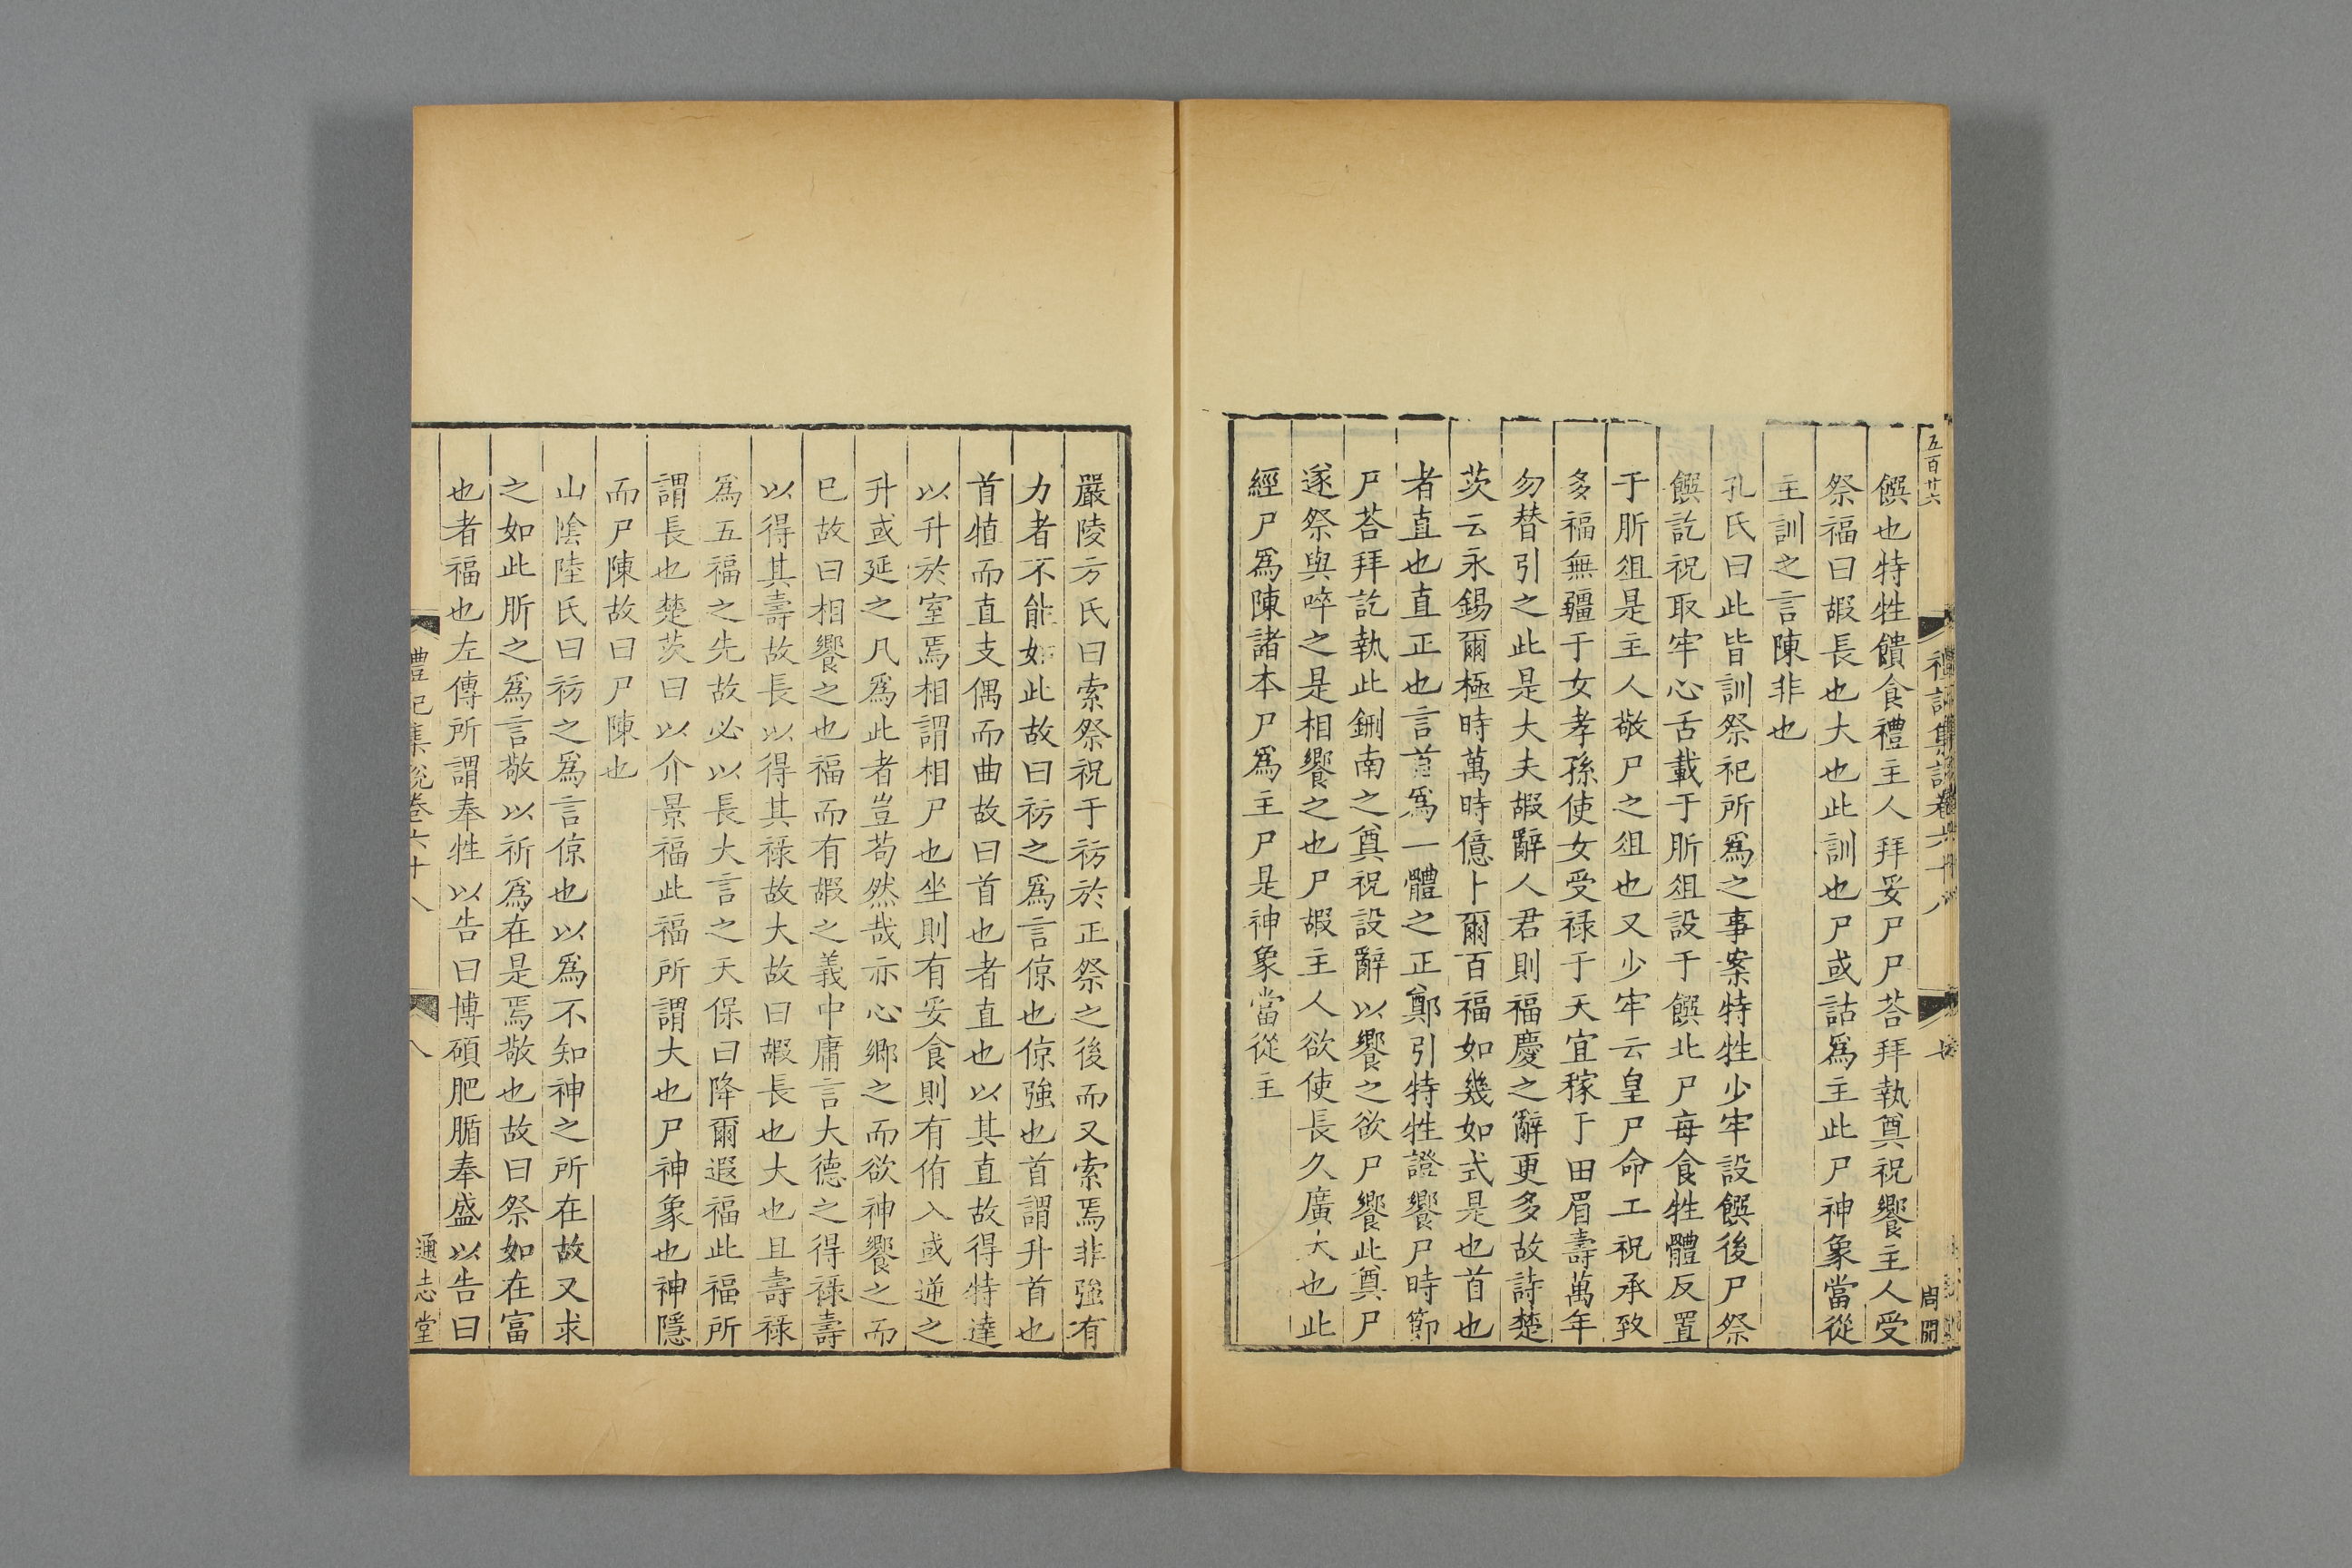 五百廿六
禮記集說卷六十八
七
周開
饌也特牲饋食禮主人拜妥尸尸荅拜執奠祝饗主人受
祭福曰嘏長也大也此訓也尸或詁爲主此尸神象當從
主訓之言陳非也
孔氏曰此皆訓祭祀所爲之事案特牲少牢設饌後尸祭
饌訖祝取牢心舌載于肵俎設于饌北尸每食牲體反置
于肵俎是主人敬尸之俎也又少牢云皇尸命工祝承致
多福無疆于女孝孫使女受祿于天宜稼于田眉壽萬年
勿替引之此是大夫嘏辭人君則福慶之辭更多故詩楚
茨云永錫爾極時萬時億卜爾百福如幾如式是也首也
者直也直正也言首爲一體之正鄭引特牲證饗尸時節
尸荅拜訖執此鉶南之奠祝設辭以饗之欲尸饗此奠尸
遂祭與啐之是相饗之也尸嘏主人欲使長久廣大也此
經尸爲陳諸本尸爲主尸是神象當從主
嚴陵方氏曰索祭祝于祊於正祭之後而又索焉非強有
力者不能如此故曰祊之爲言倞也倞強也首謂升首也
首犆而直支偶而曲故曰首也者直也以其直故得特達
以升於室焉相謂相尸也坐則有妥食則有侑入或逆之
升或延之凡爲此者豈苟然哉亦心鄉之而欲神饗之而
已故曰相饗之也福而有嘏之義中庸言大德之得祿壽
以得其壽故長以得其祿故大故曰嘏長也大也且壽祿
爲五福之先故必以長大言之天保曰降爾遐福此福所
謂長也楚茨曰以介景福此福所謂大也尸神象也神隱
而尸陳故曰尸陳也
山陰陸氏曰祊之爲言倞也以爲不知神之所在故又求
之如此肵之爲言敬以祈爲在是焉敬也故曰祭如在富
也者福也左傳所謂奉牲以告曰博碩肥腯奉盛以告曰
禮記集說卷六十八
八
通志堂